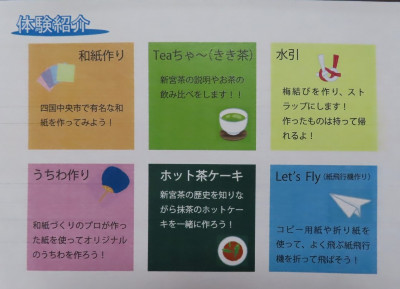 体験紹介
和紙作り
四国中央市で有名な和
紙を作ってみよう！
Teaちゃ～（きき茶）
新宮茶の説明やお茶の
飲み比べをします！！
水引
梅結びを作り、スト
ラップにします！
作ったものは持って帰
れるよ！
うちわ作り
和紙づくりのプロが作っ
た紙を使ってオリジナル
のうちわを作ろう！
ホット茶ケーキ
新宮茶の歴史を知りな
がら抹茶のホットケー
キを一緒に作ろう！
Let's Fly（紙飛行機作り）
コピー用紙や折り紙を
使って、よく飛ぶ紙飛行
機を折って飛ばそう！